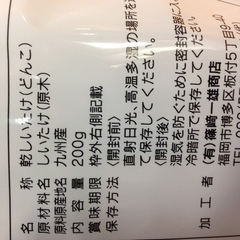 名 称 乾しいたけ(どんこ)
原材料名 しいたけ(原木)
原料原産地名 九州産
内 容 量 200g
賞味期限 枠外右側記載
保存方法 〈開封前〉
直射日光、高温多湿の場所を
て保存してください。
〈開封後〉
湿気を防ぐために密封容器に
冷暗所で保存してください。
加 工 者 (有)篠崎一雄商店
福岡市博多区板付5丁目9-